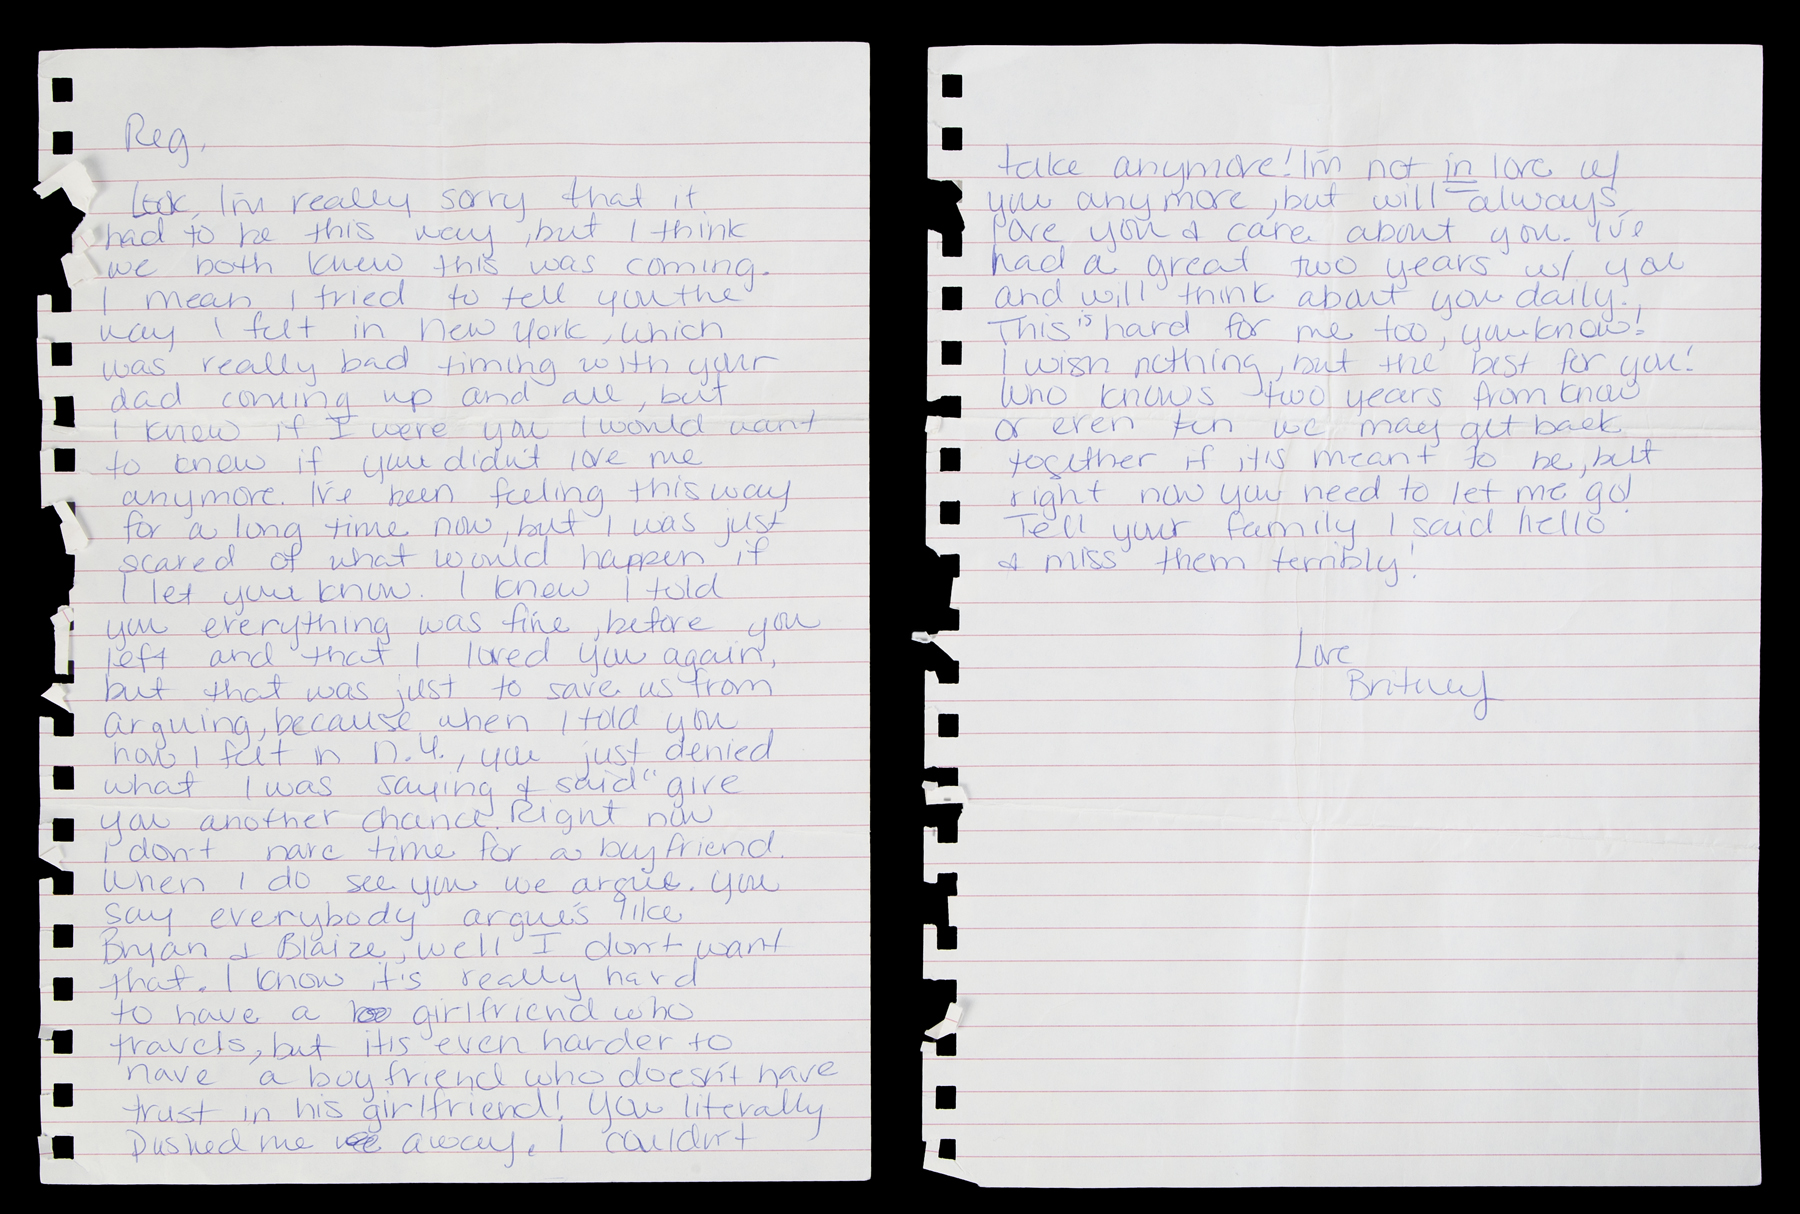 Reg,
Look, I'm really sorry that it
had to be this way, but I think
we both knew this was coming.
I mean I tried to tell you the
way I felt in New York, which
was really bad timing with your
dad coming up and all, but
I knew if I were you I would want
to know if you didn't love me
anymore. I've been feeling this way
for a long time now, but I was just
scared of what would happen if
I let you know. I know I told
you everything was fine, before you
left and that I loved you again,
but that was just to save us from
arguing, because when I told you
how I felt in N.Y., you just denied
what I was saying & said "give
you another chance. Right now
I don't have time for a boyfriend.
When I do see you we argue. You
say everybody argue's like
Bryan & Blaize, well I don't want
that. I know it's really hard
to have a girlfriend who
travels, but it's even harder to
have a boyfriend who doesn't have
trust in his girlfriend! You literally
pushed me away. I couldn't
take anymore! I'm not in love w/
you anymore, but will always
love you & care about you. I've
had a great two years w/ you
and will think about you daily.
This is hard for me too, you know!
I wish nothing, but the best for you!
Who knows two years from know
or even ten we may get back
together if it's meant to be, but
right now you need to let me go!
Tell your family I said hello
& miss them terribly!
Love
Britney